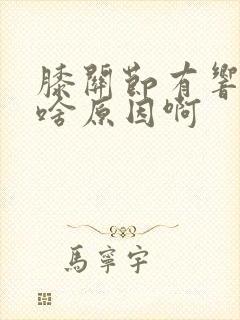 膝關節有響
啥原因啊
馬寧宇